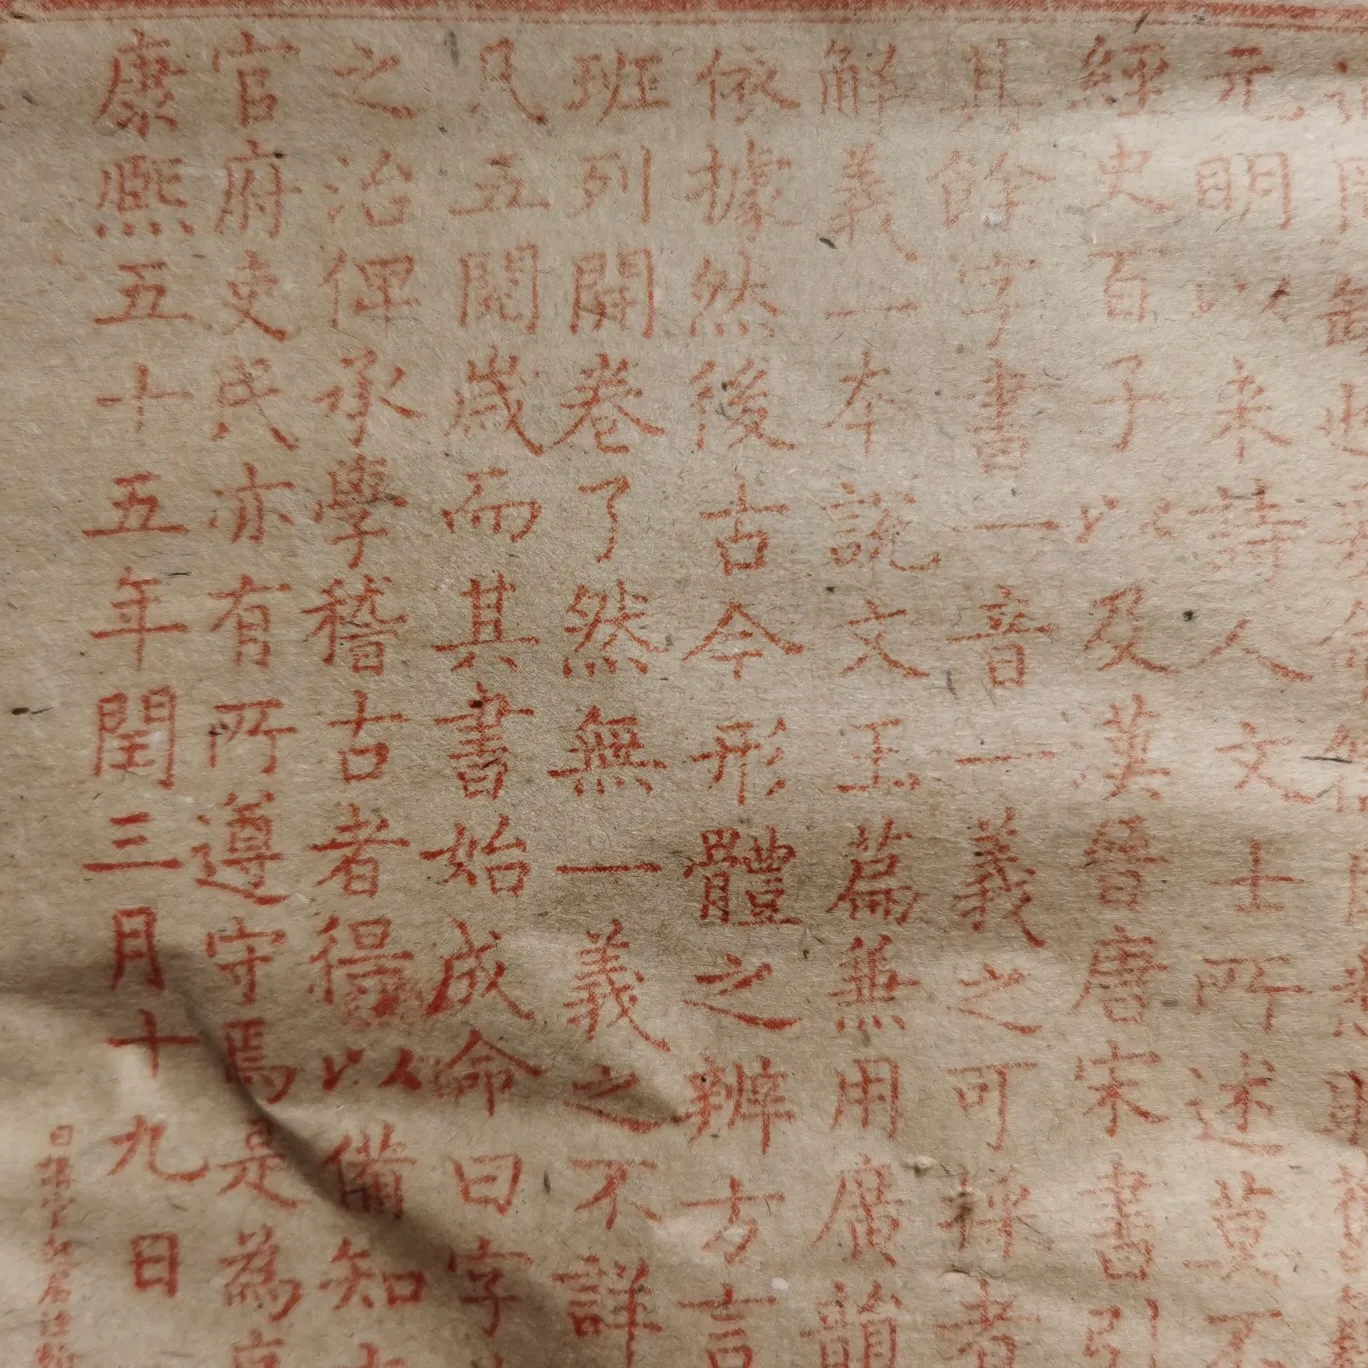 元明以来詩人文士所述莫不
經史百子以及漢晉唐宋書引
其餘字書一音一義之可採者
解義一本說文玉篇兼用廣韻
依據然後古今形體之辨方言
班列開卷了然無一義之不詳
凡五閱歲而其書始成命曰字
之治俾承學稽古者得以備知
官府吏民亦有所遵守焉是為
康熙五十五年閏三月十九日
日講官起居注